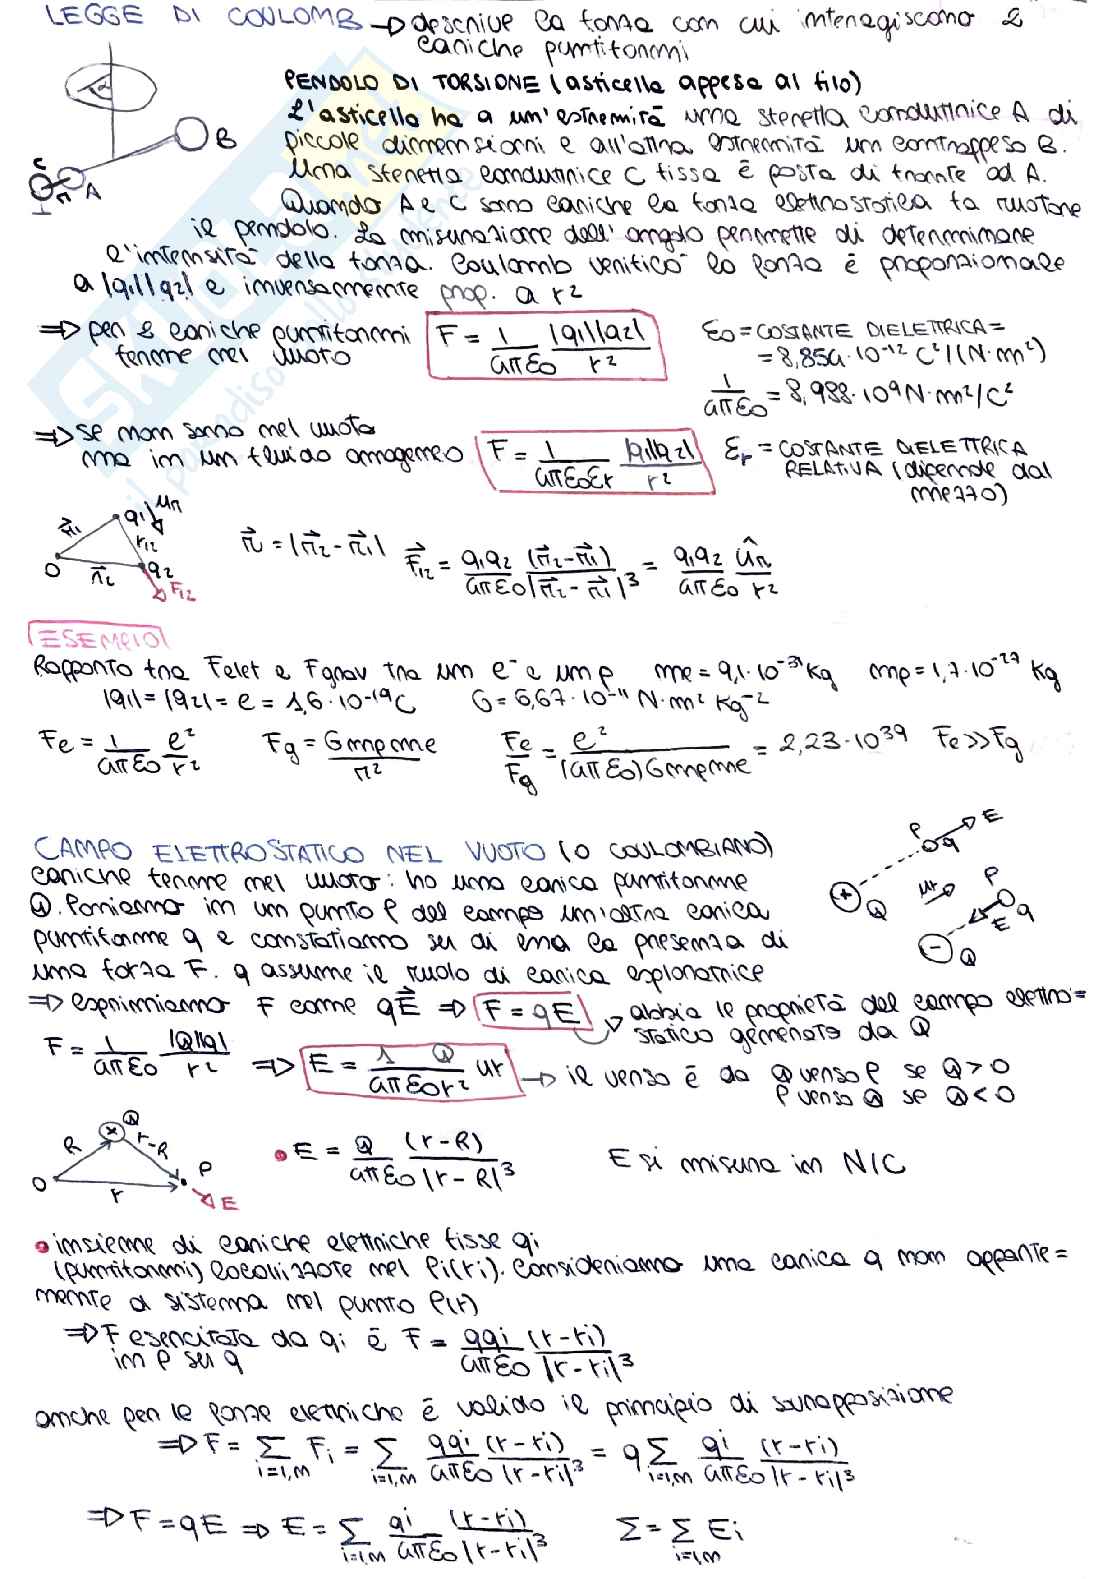 LEGGE DI COULOMB → descrive la forza con cui interagiscono 2
cariche puntiformi
PENDOLO DI TORSIONE (asticella appesa al filo)
L'asticella ha a un'estremità una sferetta conduttrice A di
piccole dimensioni e all'altra estremità un contrappeso B.
Una sferetta conduttrice C fissa è posta di fronte ad A.
Quando A e C sono cariche la forza elettrostatica fa ruotare
il pendolo. La misurazione dell'angolo permette di determinare
l'intensità della forza. Coulomb verificò la forza è proporzionale
a |q1||q2| e inversamente prop. a r²
B
C
r
A
⇒ per 2 cariche puntiformi
ferme nel vuoto
F = 1/4πε0 |q1||q2|/r²
ε0 = COSTANTE DIELETTRICA =
= 8,854·10⁻¹² C²/(N·m²)
1/4πε0 = 8,988·10⁹ N·m²/C²
⇒ se non sono nel vuoto
ma in un fluido omogeneo
F = 1/4πε0εr |q1||q2|/r²
εr = COSTANTE DIELETTRICA
RELATIVA (dipende dal
mezzo)
r⃗1 q1 ur
r12
O r⃗2 q2
F12
r⃗ = |r⃗2 - r⃗1|
F⃗12 = q1q2/4πε0 (r⃗2 - r⃗1)/|r⃗2 - r⃗1|³ = q1q2/4πε0 ûr/r²
ESEMPIO
Rapporto tra Felet e Fgrav tra un e⁻ e un p me = 9,1·10⁻³¹ Kg mp = 1,7·10⁻²⁷ Kg
|q1| = |q2| = e = 1,6·10⁻¹⁹ C G = 6,67·10⁻¹¹ N·m² Kg⁻²
Fe = 1/4πε0 e²/r² Fg = Gmpme/r² Fe/Fg = e²/(4πε0)Gmpme = 2,23·10³⁹ Fe >> Fg
CAMPO ELETTROSTATICO NEL VUOTO (O COULOMBIANO)
cariche ferme nel vuoto: ho una carica puntiforme
Q. Poniamo in un punto P del campo un'altra carica
puntiforme q e constatiamo su di essa la presenza di
una forza F. q assume il ruolo di carica esploratrice
P E
q
+ Q
ur
P
E q
- Q
⇒ esprimiamo F come qE⃗ ⇒ F = qE
abbia le proprietà del campo elettro=
statico generato da Q
F = 1/4πε0 |Q||q|/r² ⇒ E = 1/4πε0 Q/r² ur → il verso è da Q verso P se Q>0
P verso Q se Q<0
Q
R r-R
P
O r E
• E = Q/4πε0 (r-R)/|r-R|³ E si misura in N/C
• insieme di cariche elettriche fisse qi
(puntiformi) localizzate nel Pi(ri). Consideriamo una carica q non apparte=
nente a sistema nel punto P(r)
⇒ F esercitata da qi è F = qqi/4πε0 (r-ri)/|r-ri|³
in P su q
anche per le forze elettriche è valido il principio di sovrapposizione
⇒ F = Σ i=1,n Fi = Σ i=1,n qqi/4πε0 (r-ri)/|r-ri|³ = q Σ i=1,n qi/4πε0 (r-ri)/|r-ri|³
⇒ F = qE ⇒ E = Σ i=1,n qi/4πε0 (r-ri)/|r-ri|³ Σ = Σ i=1,n Ei